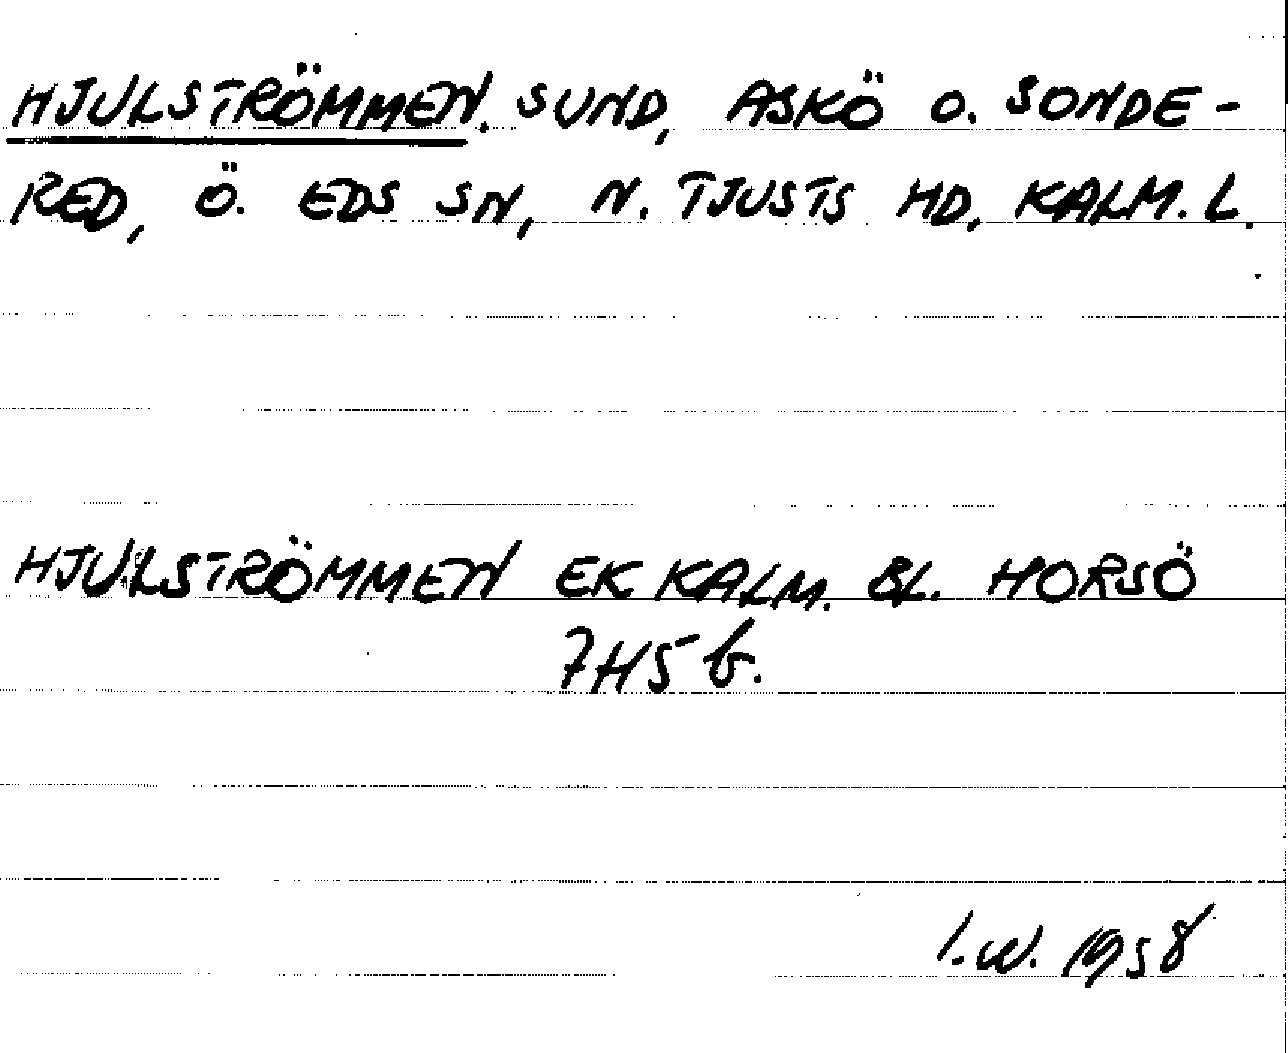 HJULSTRÖMMEN, SUND, ASKÖ O. SONDE-
RED, Ö. EDS SN, N. TJUSTS HD, KALM. L.
HJULSTRÖMMEN EK KALM. BL. HORSÖ
7H5b.
I.W. 1958